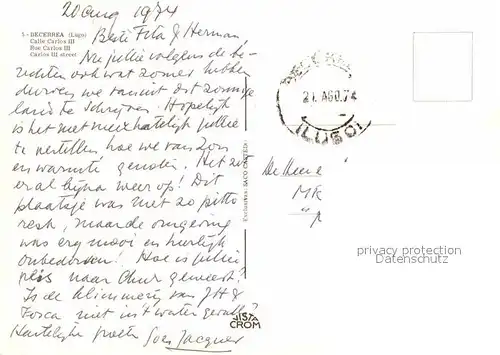 20 aug 1974
5 - BECERREA (Lugo)
Calle Carlos III
Rue Carlos III
Carlos III street
Beste Fita & Herman
Nu jullie volgens de be-
richten ook wat zomer hebben
durven we vanuit dit zonnige
land te schrijven. Hopelijk
is het niet meer hatelijk jullie
te vertellen hoe we van zon
en warmte genoten. Het zit
er al bijna weer op! Dit
plaatsje was niet zo pitto
resk, maar de omgeving
was erg mooi en heerlijk
onbedorven! Hoe is jullie
reis naar Chur geweest?
Is de klimmerij van JH &
Tosca niet in't water gevallen?
Hartelijke groeten Goos Jacquer
BECERREA
21 AGO. 74
(LUGO)
De Heer e
MR
privacy protection
Datenschutz
Exclusivas: PACO CASTELO
VISTA
CROM